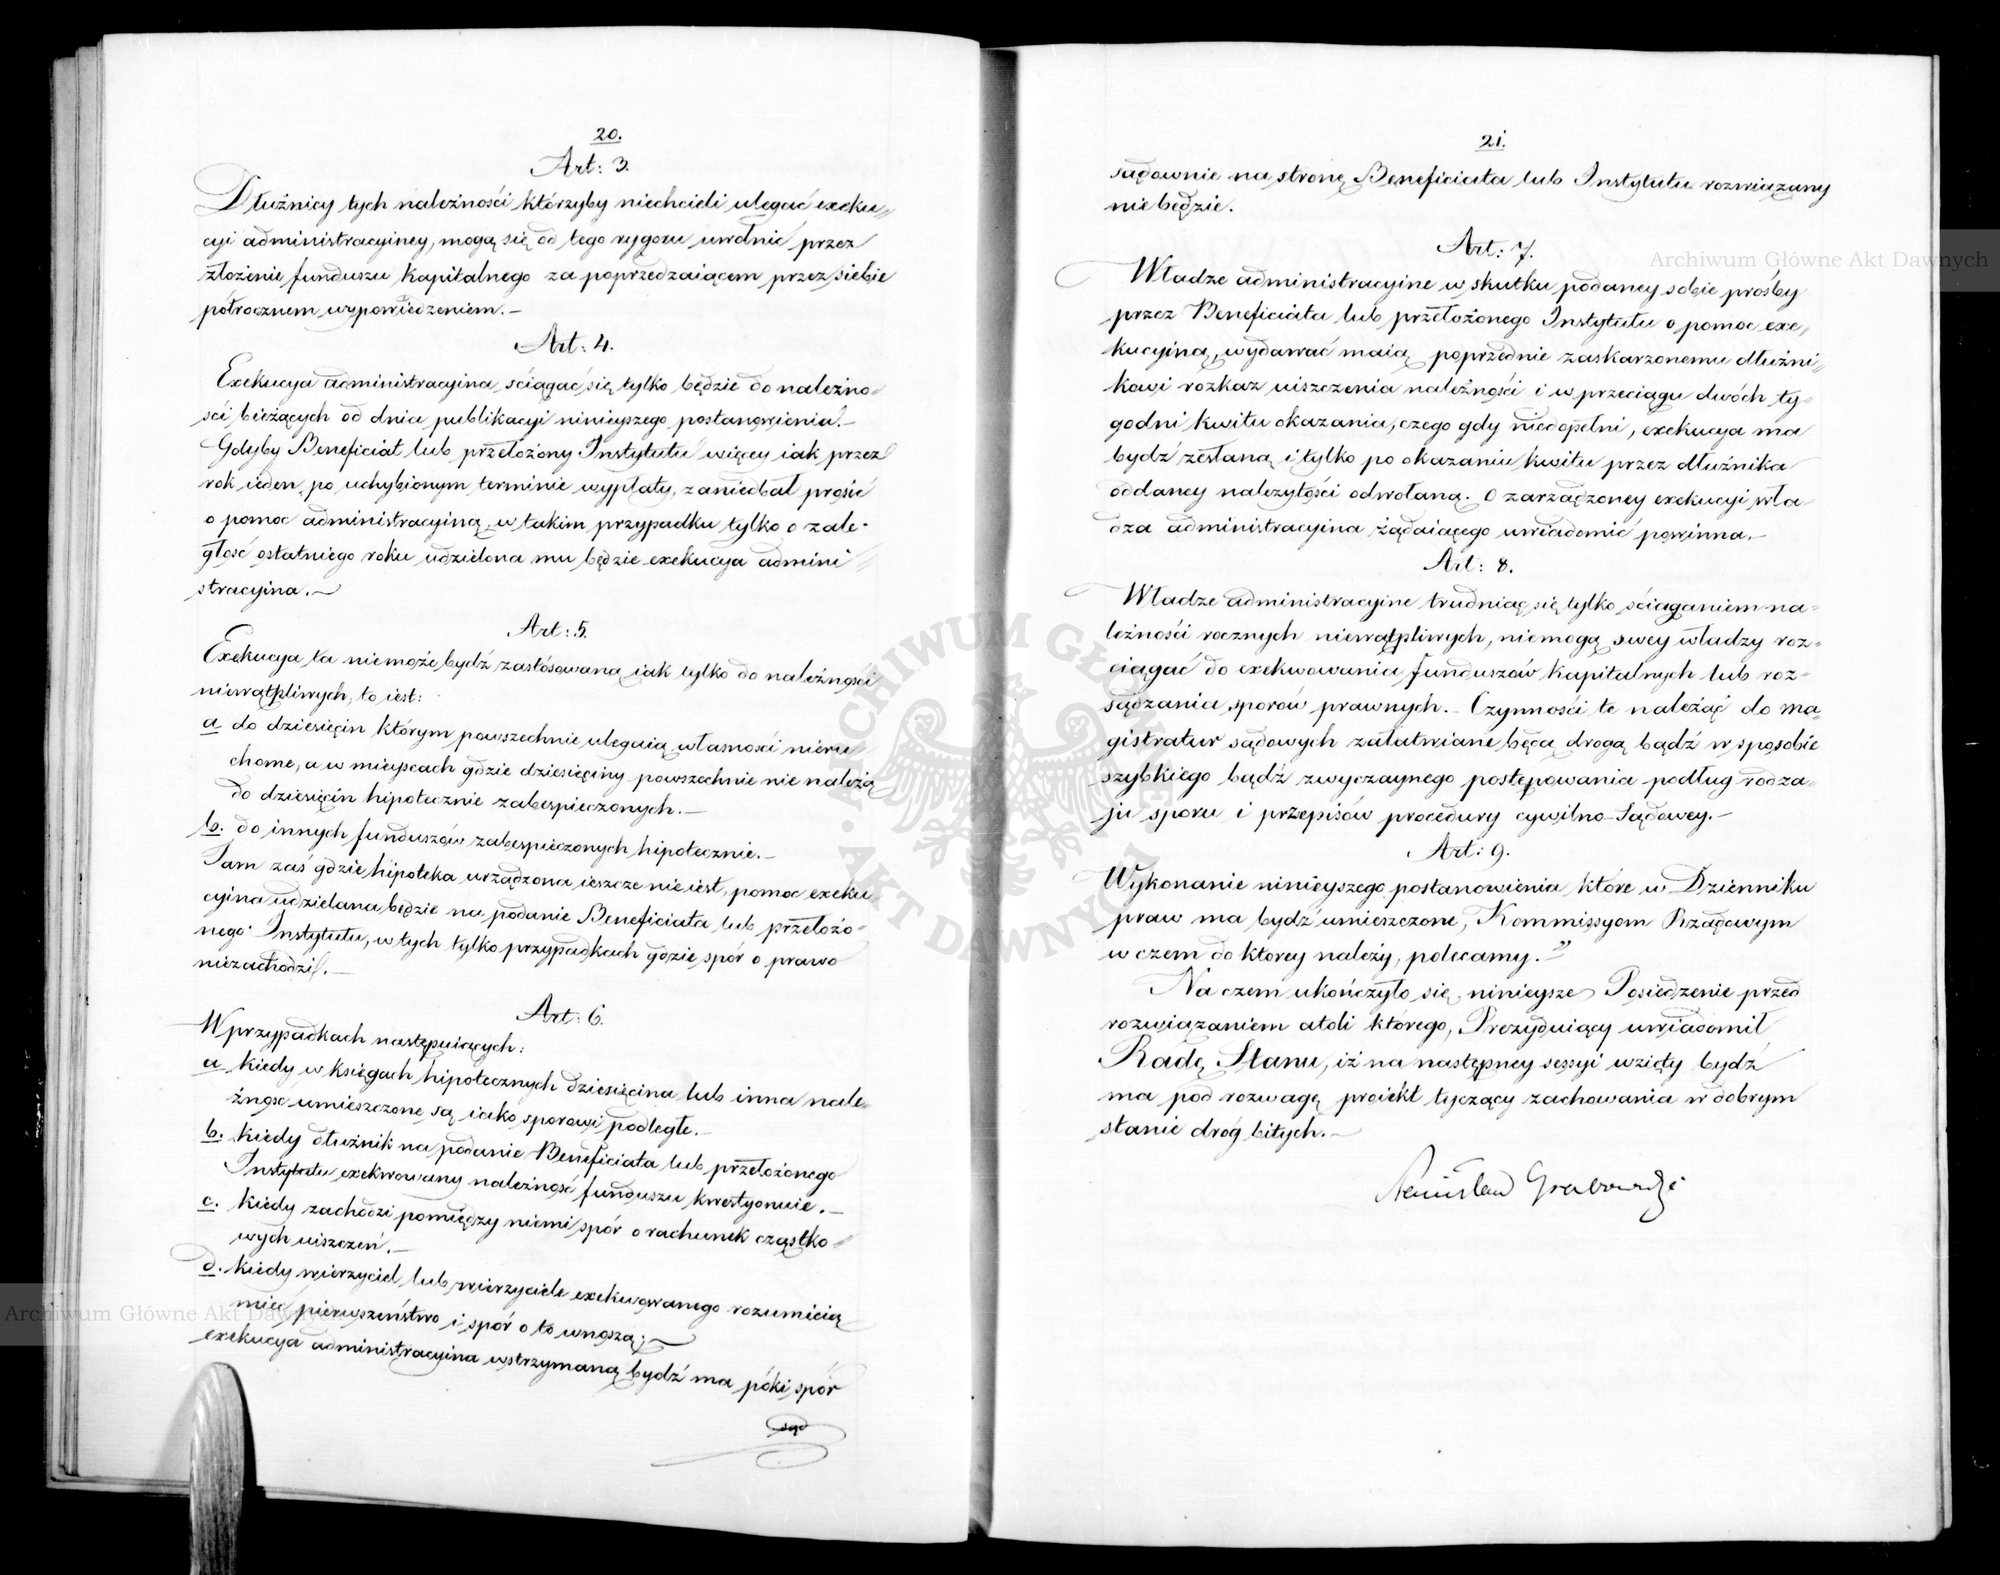 20.
Art: 3.
Dłużnicy tych należności którzyby niechcieli ulegać exeku„
cyi administracyiney, mogą się od tego rygoru uwolnić przez
złożenie funduszu kapitalnego za poprzedzaiącem przez siebie
półrocznem wypowiedzeniem.–
Art: 4.
Exekucya administracyina ściągać się tylko będzie do należno=
ści bieżących od dnia publikacyi ninieyszego postanowienia.–
Gdyby Beneficiat lub przełożony Instytutu więcey iak przez
rok ieden, po uchybionym terminie wypłaty, zaniedbał prosić
o pomoc administracyiną, w takim przypadku tylko o zale=
głość ostatniego roku udzielona mu będzie exekucya admini„
stracyina.–
Art: 5.
Exekucya ta niemoże bydź zastósowaną iak tylko do należności
niewątpliwych, to iest:
a do dziesięcin którym powszechnie ulegaią własności nieru„
chome, a w mieyscach gdzie dziesięciny powszechnie nie należą
do dziesięcin hipotecznie zabespieczonych.–
b. do innych funduszów zabespieczonych hipotecznie.–
Tam zaś gdzie hipoteka urządzona ieszcze nie iest, pomoc exeku„
cyina udzielana będzie na podanie Beneficiata lub przełożo=
nego Instytutu, w tych tylko przypadkach gdzie spór o prawo
niezachodzi.–
Art: 6.
W przypadkach następuiących:
a kiedy w księgach hipotecznych dziesięcina lub inna nale=
żność umieszczone są iako sporowi podległe.–
b. kiedy dłużnik na podanie Beneficiata lub przełożonego
Instytutu exekwowany należność funduszu kwestyonuie.–
c. kiedy zachodzi pomiędzy niemi spór o rachunek cząstko„
wych uiszczeń.–
d. kiedy wierzyciel lub wierzyciele exekwowanego rozumieią
mieć pierwszeństwo i spór o to wnoszą;–
exekucya administracyina wstrzymaną bydź ma póki spór
sąd
21.
sądownie na stronę Beneficiata lub Instytutu rozwiązany
nie będzie.
Art: 7.
Władze administracyine w skutku podaney sobie prośby
przez Beneficiata lub przełożonego Instytutu o pomoc exe„
kucyiną, wydawać maią poprzednie zaskarzonemu dłużni„
kowi rozkaz uiszczenia należności i w przeciągu dwóch ty=
godni kwitu okazania, czego gdy niedopełni, exekucya ma
bydź zesłaną i tylko po okazaniu kwitu przez dłużnika
oddaney należytości odwołaną. O zarządzoney exekucyi wła
dza administracyina żądaiącego uwiadomić powinna.–
Art: 8.
Władze administracyine trudniąc się tylko ściąganiem na=
leżności rocznych niewątpliwych, niemogą swey władzy roz=
ciągać do exekwowania funduszów kapitalnych lub roz=
sądzania sporów prawnych.– Czynności te należąc do ma=
gistratur sądowych załatwiane będą drogą bądź w sposobie
szybkiego bądź zwyczaynego postępowania podług rodza=
ju sporu i przepisów procedury cywilno-Sądowey.–
Art: 9.
Wykonanie ninieyszego postanowienia, które w Dzienniku
praw ma bydź umieszczone, Kommissyom Rządowym
w czem do którey należy, polecamy.–"
Na czem ukończyło się ninieysze Posiedzenie przed
rozwiązaniem atoli którego, Prezyduiący uwiadomił
Radę Stanu, iż na następney sessyi wzięty bydź
ma pod rozwagę proiekt tyczący zachowania w dobrym
stanie dróg bitych.–
Stanisław Grabowski
Archiwum Główne Akt Dawnych
Archiwum Główne Akt Dawnych
ARCHIWUM GŁÓWNE · AKT DAWNYCH ·